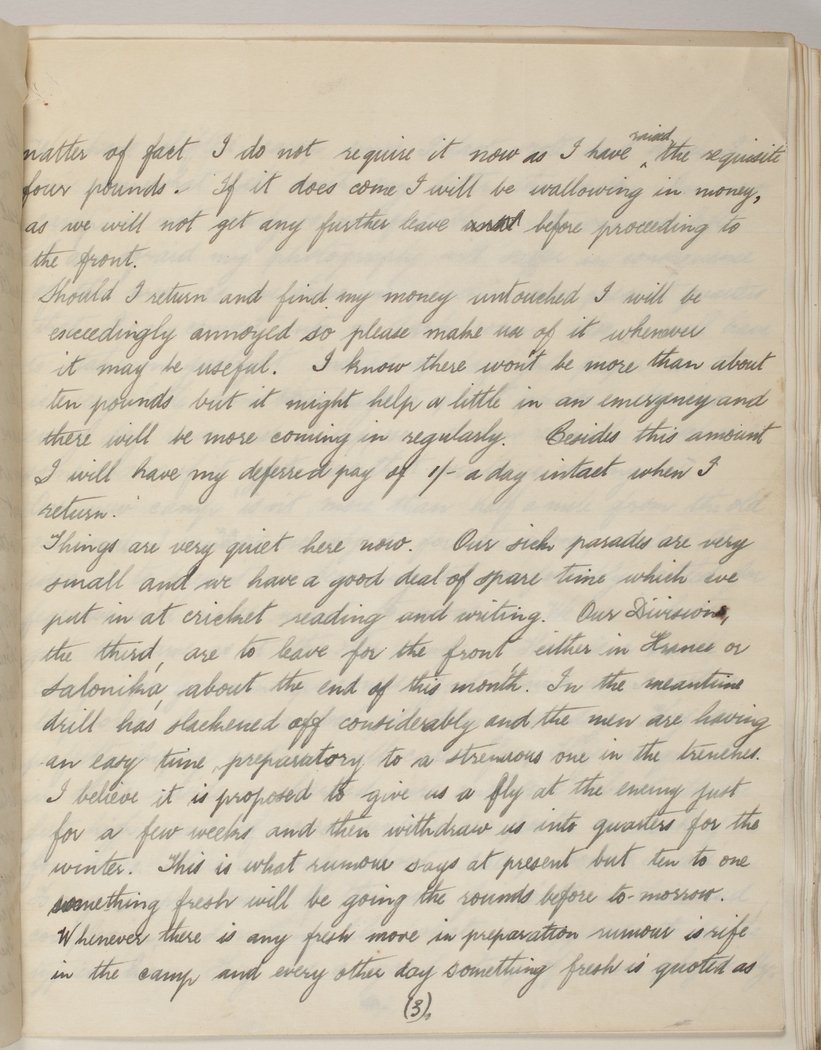 matter of fact I do not require it now as I have raised the requisite
four pounds. If it does come I will be wallowing in money,
as we will not get any further leave before proceeding to
the front.
Should I return and find my money untouched I will be
exceedingly annoyed so please make use of it whenever
it may be useful. I know there won't be more than about
ten pounds but it might help a little in an emergency and
there will be more coming in regularly. Besides this amount
I will have my deferred pay of 1/- a day intact when I
return.
Things are very quiet here now. Our sick parades are very
small and we have a good deal of spare time which we
put in at cricket reading and writing. Our Division,
the third, are to leave for the front, either in France or
Salonika, about the end of this month. In the meantime
drill has slackened off considerably and the men are having
an easy time preparatory to a strenuous one in the trenches.
I believe it is proposed to give us a fly at the enemy just
for a few weeks and then withdraw us into quarters for the
winter. This is what rumour says at present but ten to one
something fresh will be going the rounds before to-morrow.
Whenever there is any fresh move in preparation rumour is rife
in the camp and every other day something fresh is quoted as
(3).